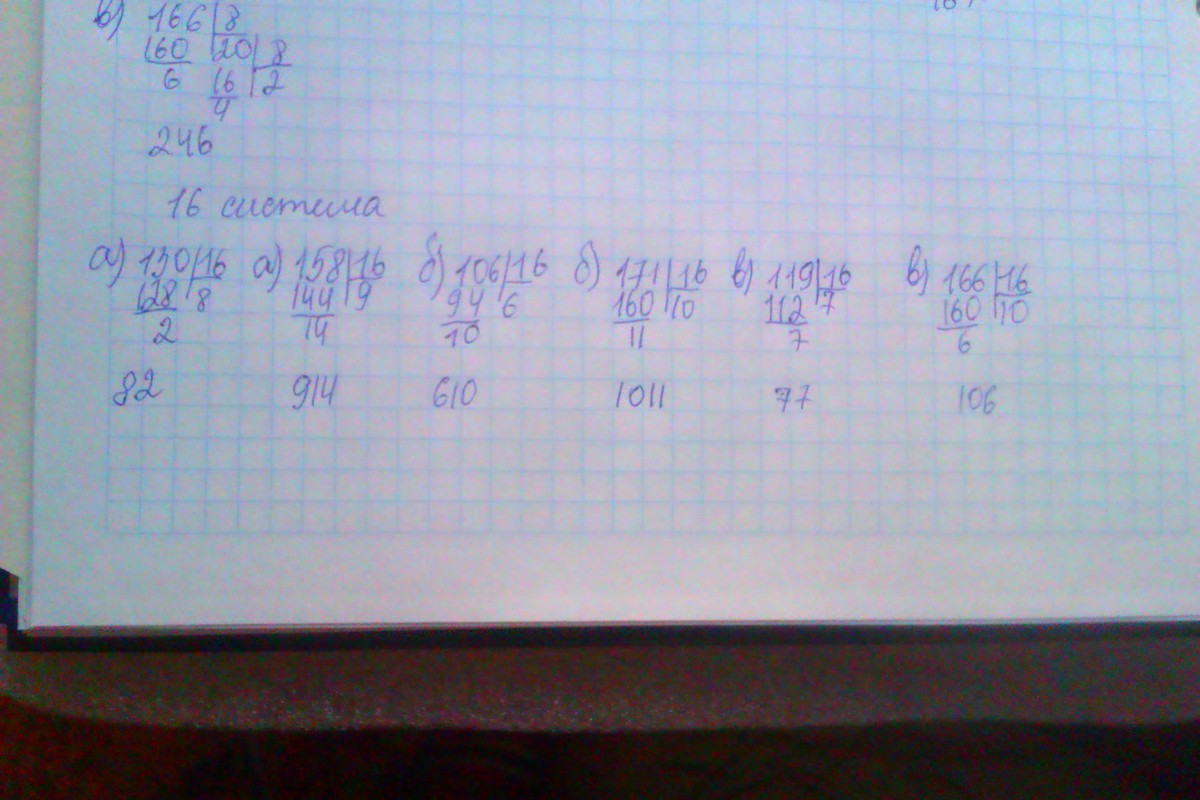 в) 166 8
160 20 8
6 16 2
4
246
16 система
а) 130 16 а) 158 16 б) 106 16 б) 171 16 в) 119 16 в) 166 16
128 8 144 9 94 6 160 10 112 7 160 10
2 14 10 11 7 6
82 914 610 1011 77 106